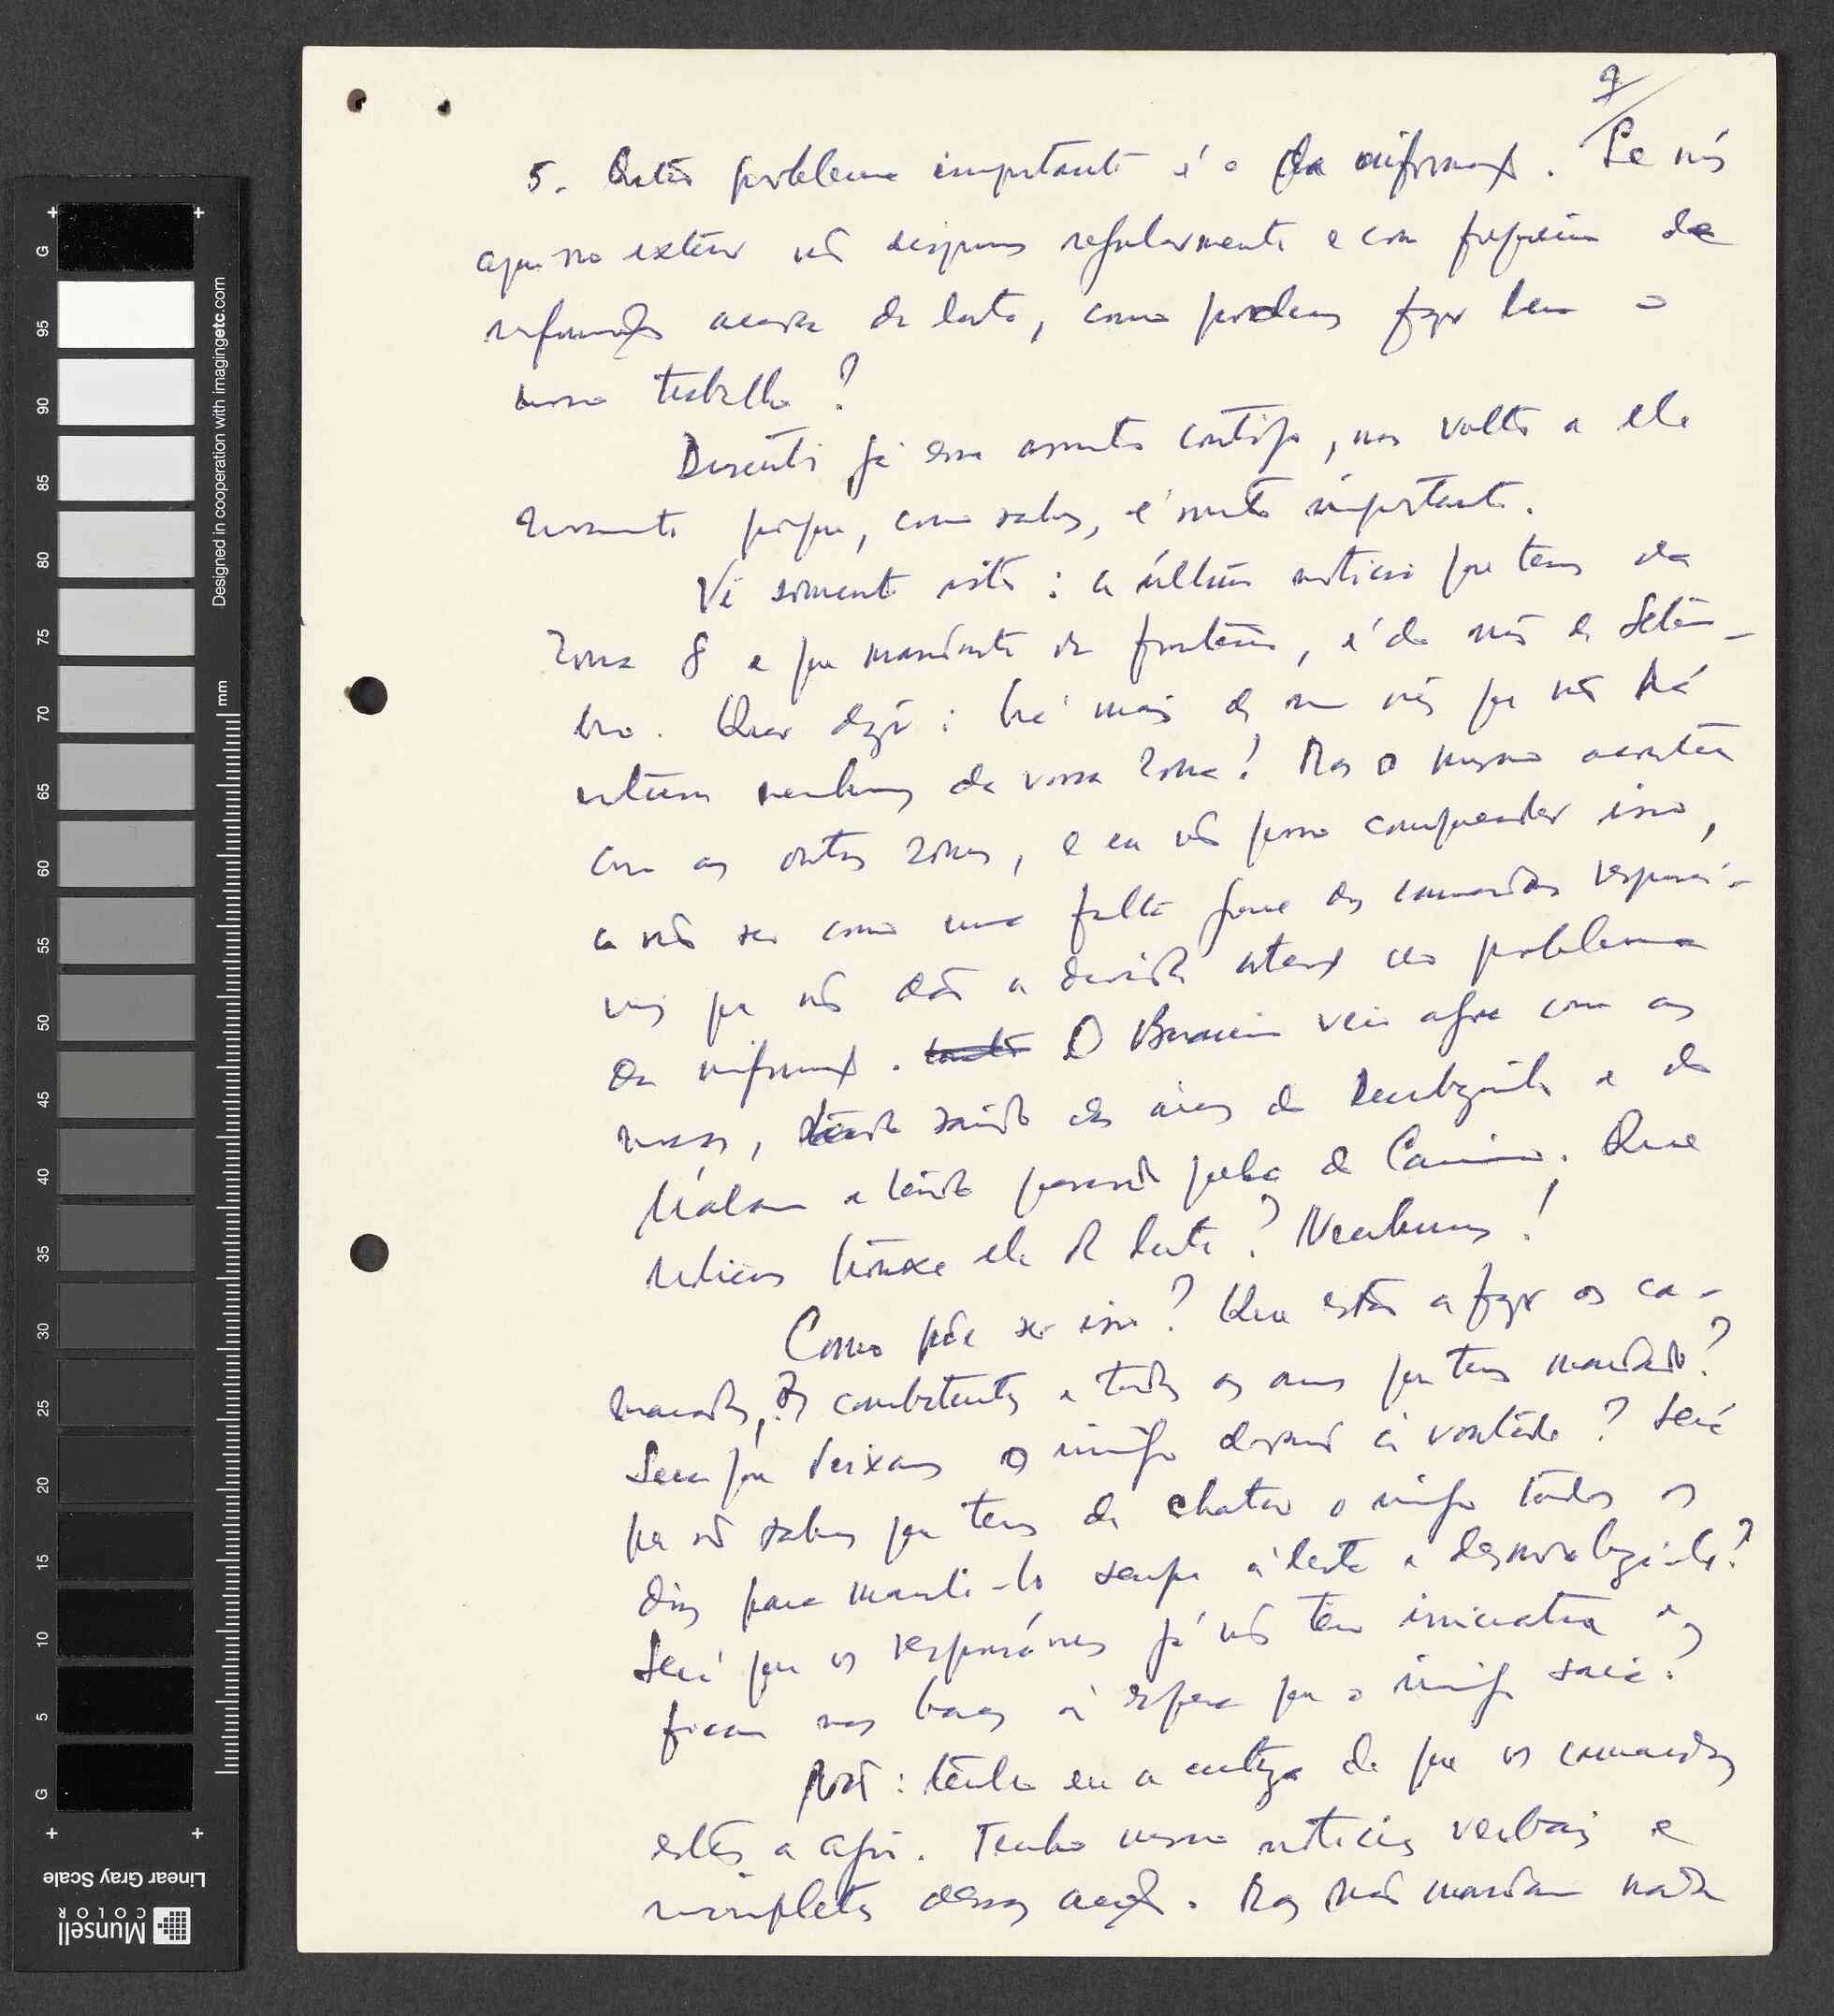 9/
5. Outro problema importante é o da informação. Se nós
aqui no exterior não dispomos regularmente e com frequência de
informações acerca da luta, como podemos fazer bem o
nosso trabalho?
Discuti já esse assunto contigo, mas volto a ele
novamente porque, como sabes, é muito importante.
Vê somente isto: a última notícia que temos da
Zona 8 e que mandaste da fronteira, é do mês de Setem-
bro. Quer dizer: há mais de um mês que não há
notícias nenhumas da vossa zona! Mas o mesmo acontece
com as outras zonas, e eu não posso compreender isso,
a não ser como uma falta grave dos camaradas responsá-
veis que não dão a devida atenção ao problema
da informação. O veio agora com as
tendo saído das áreas de e de
e tendo passado pela de Que
notícias trouxe ele da luta? Nenhumas!
Como pode ser isso? Que estão a fazer os ca-
maradas, os combatentes e todas as armas que temos mandado?
Será que deixamos o inimigo dormir à vontade? Será
que não sabemos que temos de chatear o inimigo todos os
dias para mantê-lo sempre alerta e desmoralizá-lo?
Será que os responsáveis já não têm iniciativa e
ficam nas bases à espera que o inimigo saia?
Não: tenho eu a certeza de que os camaradas
estão a agir. Tenho mesmo notícias verbais e
incompletas dessas acções. Mas não mandam nada
Designed in cooperation with imagingetc.com
mm
G 95 90 85 80 75 70 65 60 55 50 45 40 35 30 25 20 15 10 5 G
Linear Gray Scale
Munsell
COLOR